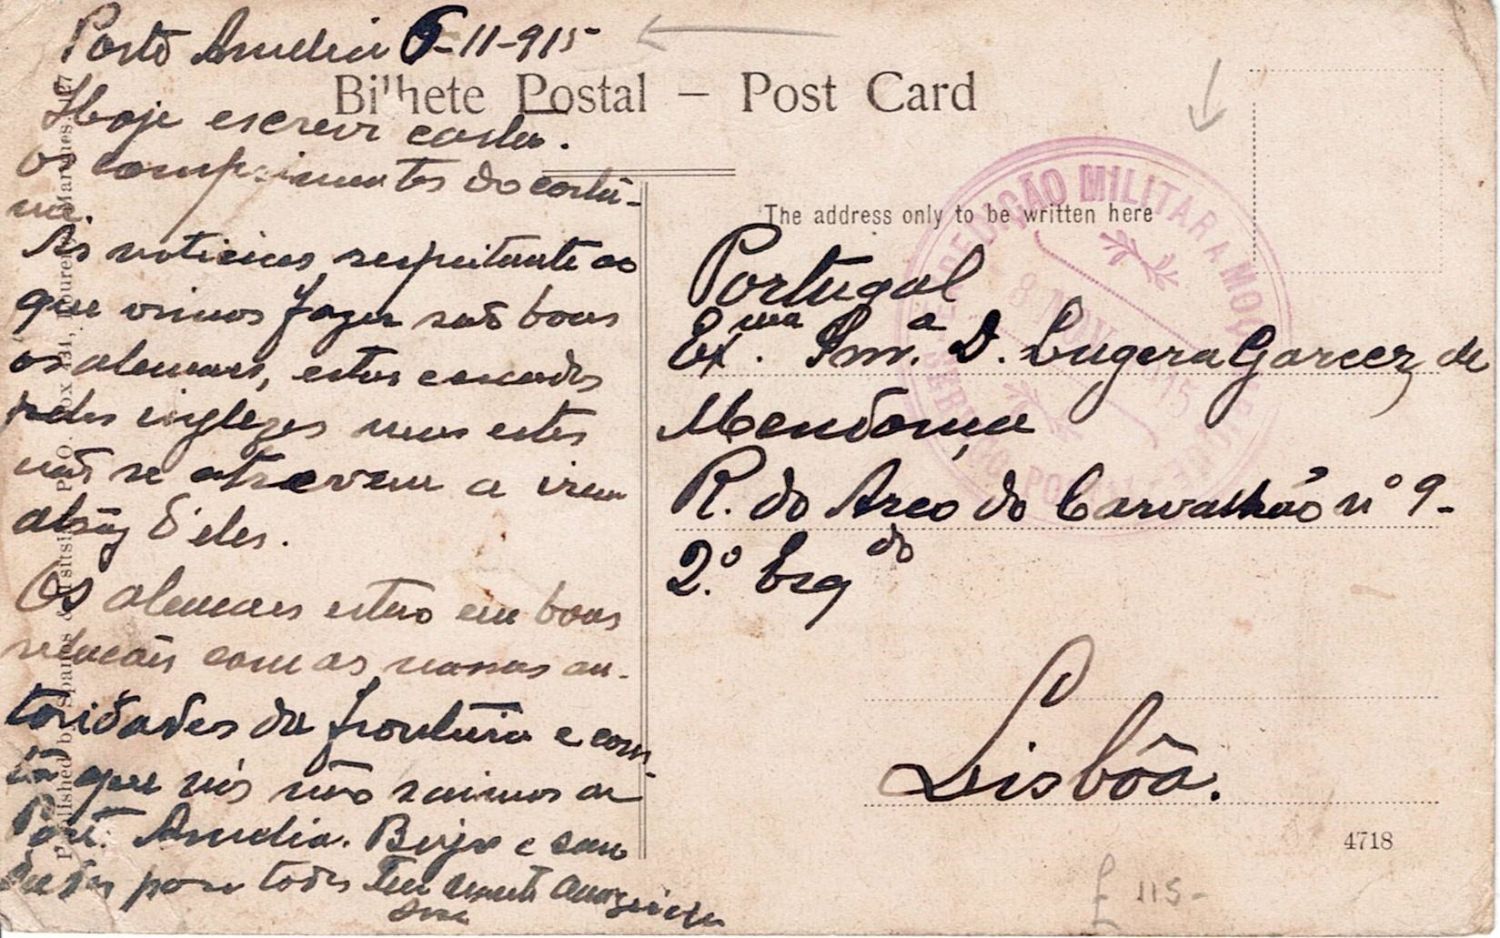 Porto Amelia 6-11-915-
Bilhete Postal – Post Card
Hoje escrevi carta.
Os comprimentos do costu-
me.
As noticias respeitante ao
que vimos fazer são boas
os alemaes, estas
pelos inglezes mas estes
não se atrevem a irem
atraz d'eles.
Os alemaes estao em boas
relacões com as nossas au-
toridades da fronteira e com-
que nós não saimos de
Port. Amelia. Beijo e sau
dades para todos Teu
The address only to be written here
EXPEDIÇÃO MILITAR A MOÇAMBIQUE
8 NOV. 1915
SERVIÇO POSTAL
Portugal
Exma Snr.a D. Eugenia Garcez de
Mendonça
R. do Arco do Carvalhão nº 9-
2.º Esqdo
Lisbôa.
4718
£ 115-